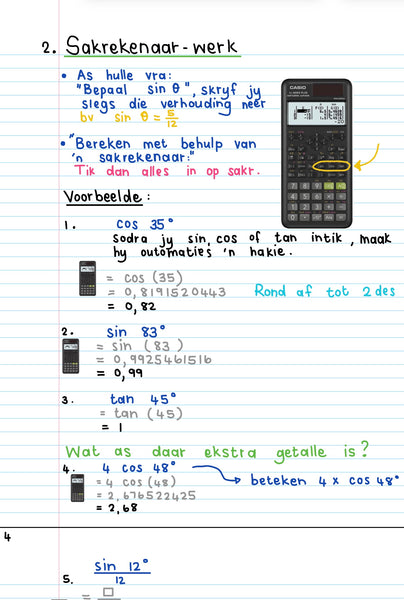 2. Sakrekenaar-werk
• As hulle vra:
"Bepaal sin θ", skryf jy
slegs die verhouding neer
bv sin θ = 5/12
• "Bereken met behulp van
'n sakrekenaar:"
Tik dan alles in op sakr.
CASIO
Voorbeelde:
1. cos 35°
Sodra jy sin, cos of tan intik, maak
hy outomaties 'n hakie.
= cos (35)
= 0,8191520443
Rond af tot 2 des
= 0,82
2. sin 83°
= sin (83)
= 0,9925461516
= 0,99
3. tan 45°
= tan (45)
= 1
Wat as daar ekstra getalle is?
4. 4 cos 48°
beteken 4 x cos 48°
= 4 cos (48)
= 2,676522425
= 2,68
4
5. sin 12°
12
=